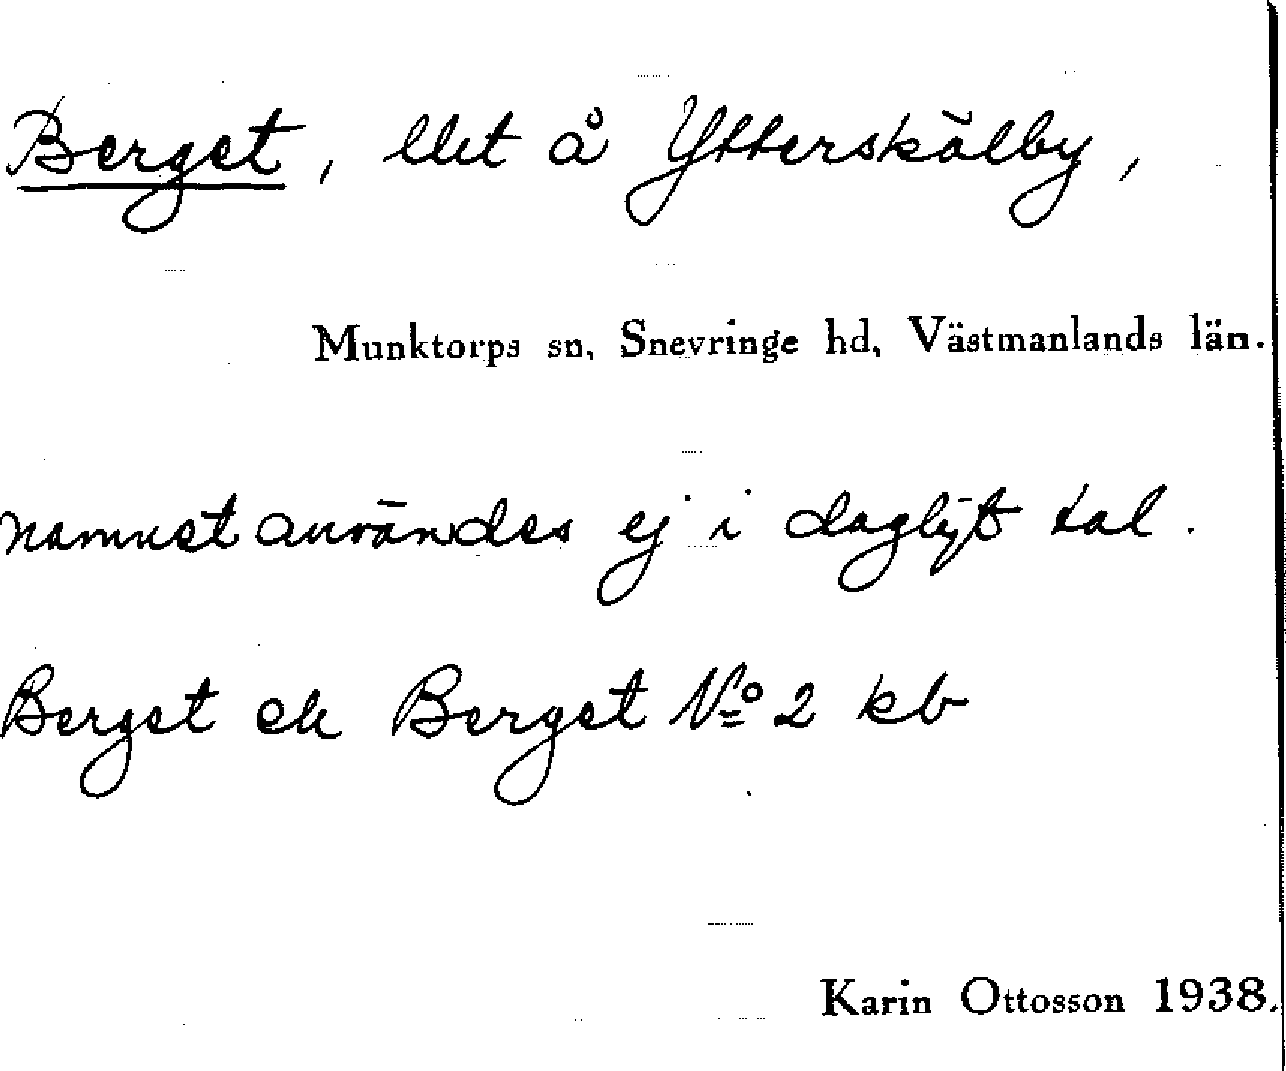 Berget, llet å Ytterskälby,
Munktorps sn, Snevringe hd, Västmanlands län.
namnet användes ej i dagligt tal.
Berget ek Berget No 2 kb
Karin Ottosson 1938.